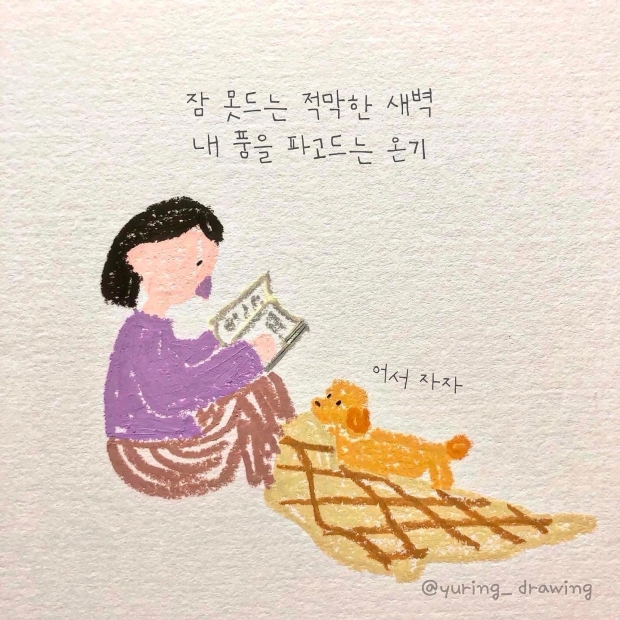 잠 못드는 적막한 새벽
내 품을 파고드는 온기
어서 자자
@yuring_drawing